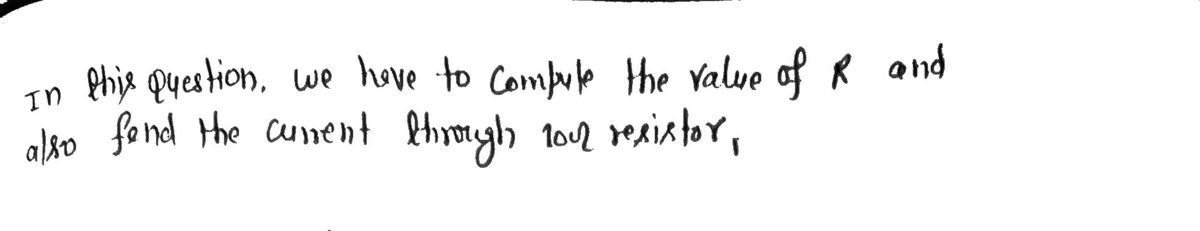 In this question, we have to compute the value of R and
also fend the current through 10Ω resistor,